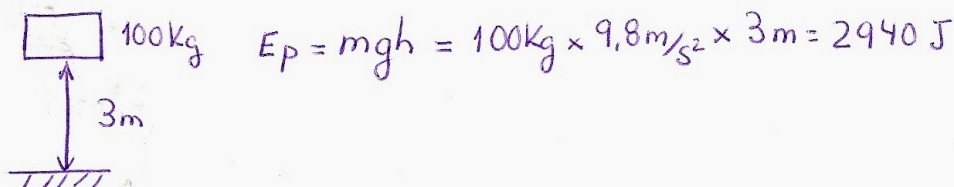 100Kg Ep = mgh = 100Kg × 9,8m/s² × 3m = 2940 J
3m